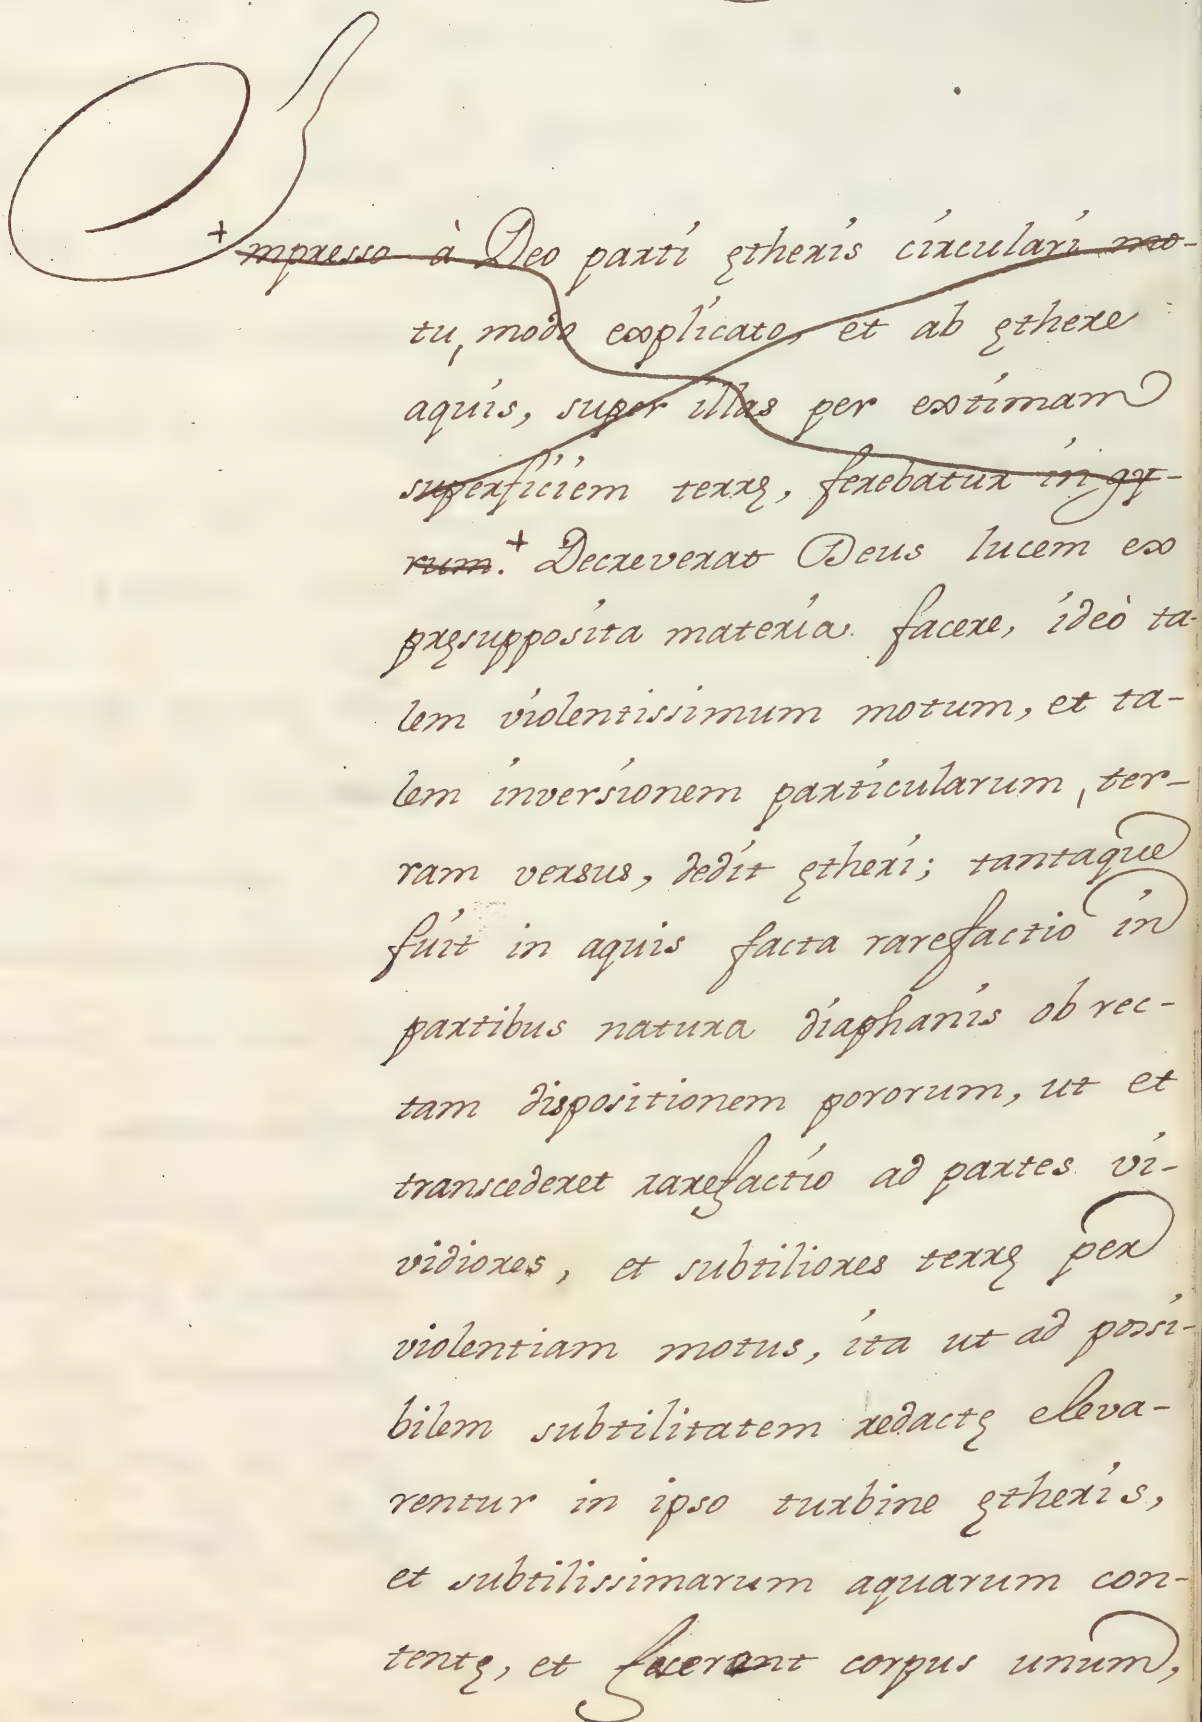 + Impresso à Deo parti ętheris circulari mo-
tu, modo explicato, et ab ęthere
aquis, super illas per extimam
superficiem terrę, ferebatur in gy-
rum.+ Decreverat Deus lucem ex
pręsupposita materia facere, ideò ta-
lem violentissimum motum, et ta-
lem inversionem particularum, ter-
ram versus, dedit ętheri; tantaque
fuit in aquis facta rarefactio in
partibus natura diaphanis ob rec-
tam dispositionem pororum, ut et
transcederet rarefactio ad partes vi-
vidiores, et subtiliores terrę per
violentiam motus, ita ut ad possi-
bilem subtilitatem redactę eleva-
rentur in ipso turbine ętheris,
et subtilissimarum aquarum con-
tentę, et facerent corpus unum,